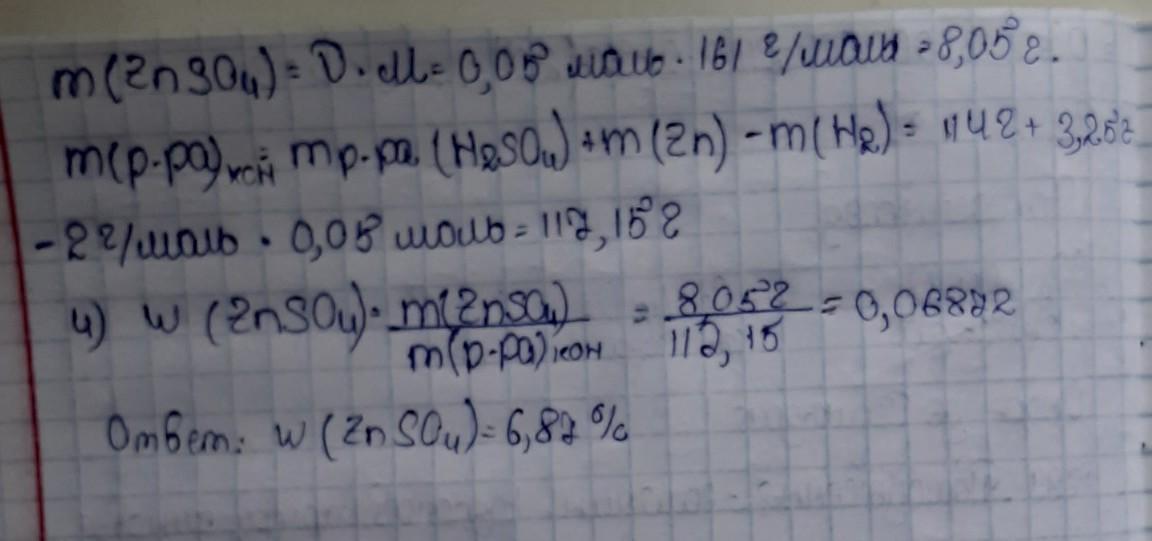 m(ZnSO₄) = ν · M = 0,05 моль · 161 г/моль = 8,05 г.
m(р-ра)кон = mр-ра (H₂SO₄) + m(Zn) - m(H₂) = 114г + 3,25г
- 2 г/моль · 0,05 моль = 117,15 г
4) w (ZnSO₄) = m(ZnSO₄) / m(р-ра)кон = 8,05г / 117,15 = 0,06872
Ответ: w (ZnSO₄) = 6,87 %